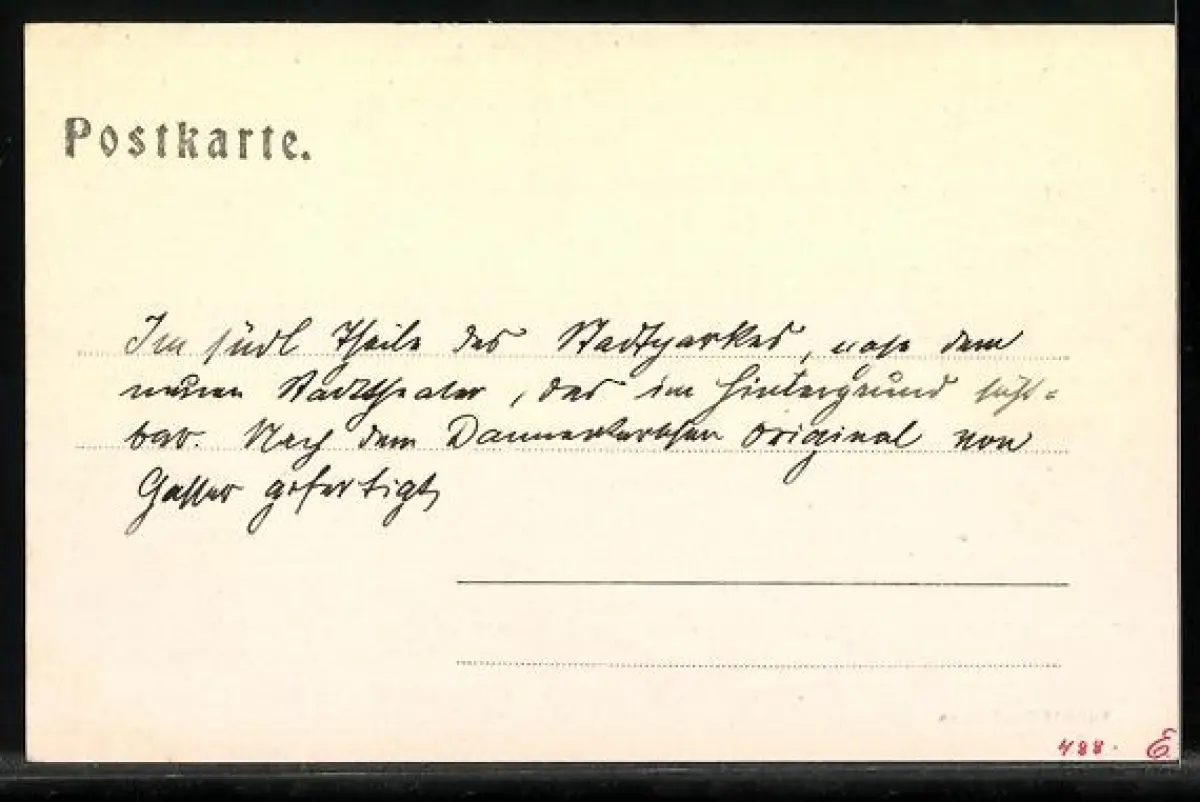 Postkarte.
Im südl Theile des Stadtparkes, nahe dem
neuen Stadttheater, das im Hintergrund sicht=
bar. Nach dem original von
Gasser gefertigt
488. E